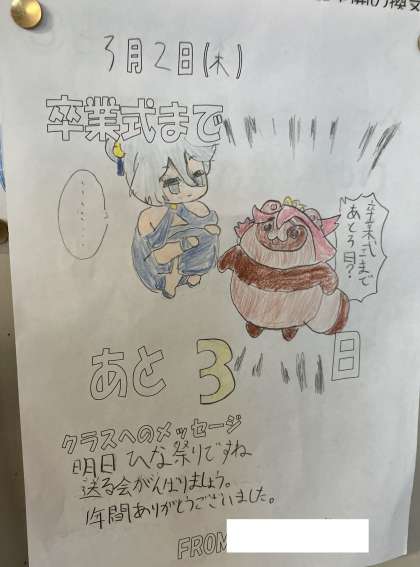 3月2日(木)
卒業式まで
・・・・・・
卒業式まで
あと3日?
あと 3 日
クラスへのメッセージ
明日ひな祭りですね
送る会がんばりましょう。
1年間ありがとうございました。
FROM